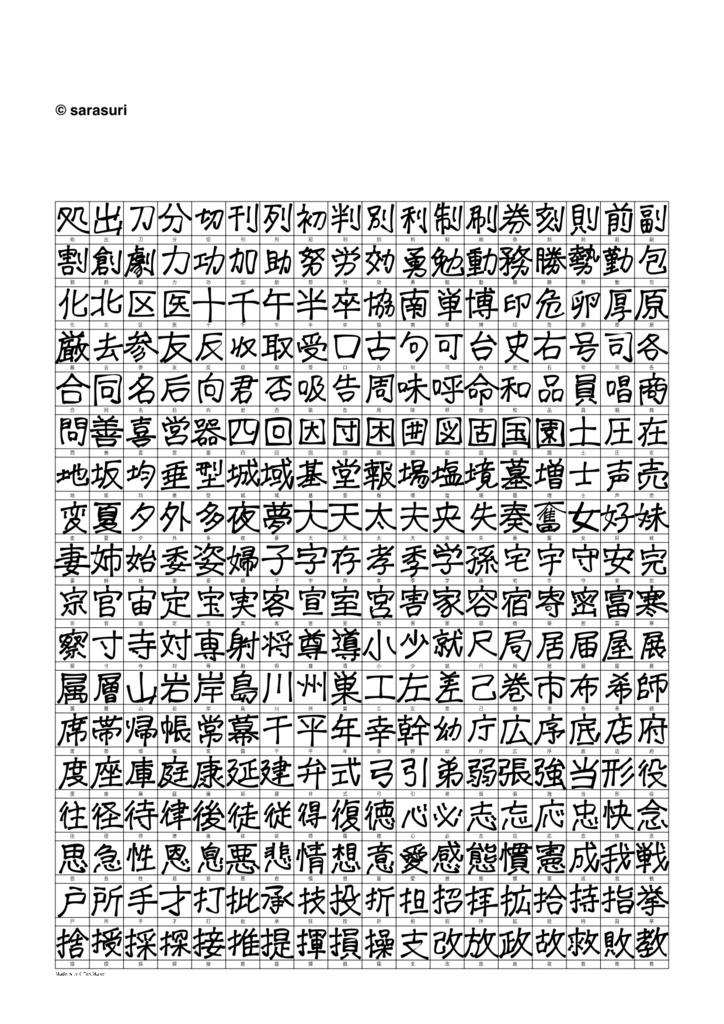 © sarasuri
処出刀分切刊列初判別利制刷券刻則前副
割創劇力功加助努労効勇勉動務勝勢勤包
化北区医十千午半卒協南単博印危卵厚原
厳去参友反収取受口古句可台史右号司各
合同名后向君否吸告周味呼命和品員唱商
問善喜営器四回因寸困囲図固国園土圧在
地坂均垂型城域基堂報場塩境墓増士声売
変夏夕外多夜夢大天太夫央失奏奮女好妹
妻姉始委姿婦子字存孝季学孫宅宇守安完
宗官宙定宝実客宣室宮害家容宿寄密富寒
察寸寺対専射将尊導小少就尺局居届屋展
属層山岩岸島川州巣工左差己巻市布希師
席帯帰帳常幕干平年幸幹幼庁広序底店府
度座庫庭康延建弁式弓引弟弱張強当形役
往径待律後徒従得復徳心必志忘応忠快念
思急性恩息悪悲情想意愛感態慣憲成我戦
戸所手才打批承技投折担招拝拡拾持指挙
捨授採探接推提揮損操支改放政故救敗教